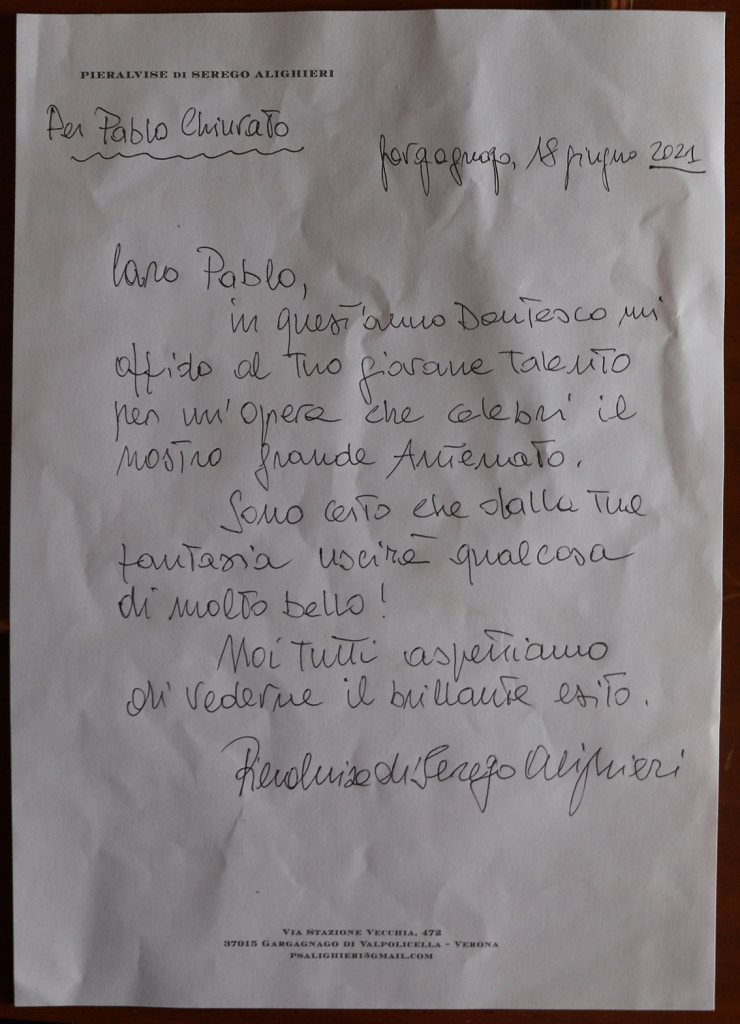 PIERALVISE DI SEREGO ALIGHIERI
Per Pablo Chiurato
Gargagnago, 18 giugno 2021
Caro Pablo,
in quest'anno Dantesco mi
affido al tuo giovane talento
per un'opera che celebri il
nostro grande Antenato.
Sono certo che dalla tua
fantasia uscirà qualcosa
di molto bello!
Noi tutti aspettiamo
di vederne il brillante esito.
Pieralvise di Serego Alighieri
VIA STAZIONE VECCHIA, 472
37015 GARGAGNAGO DI VALPOLICELLA - VERONA
PSALIGHIERI@GMAIL.COM